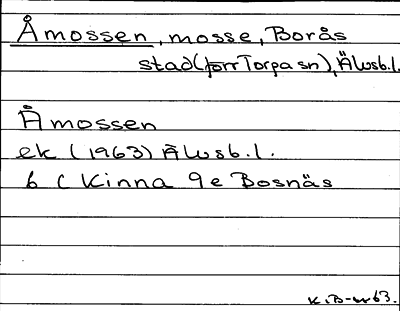 Åmossen, mosse, Borås
stad (förr Torpa sn), Älvsb.l.
Åmossen
ek (1963) Älvsb.l.
6 C Kinna 9e Bosnäs
63.